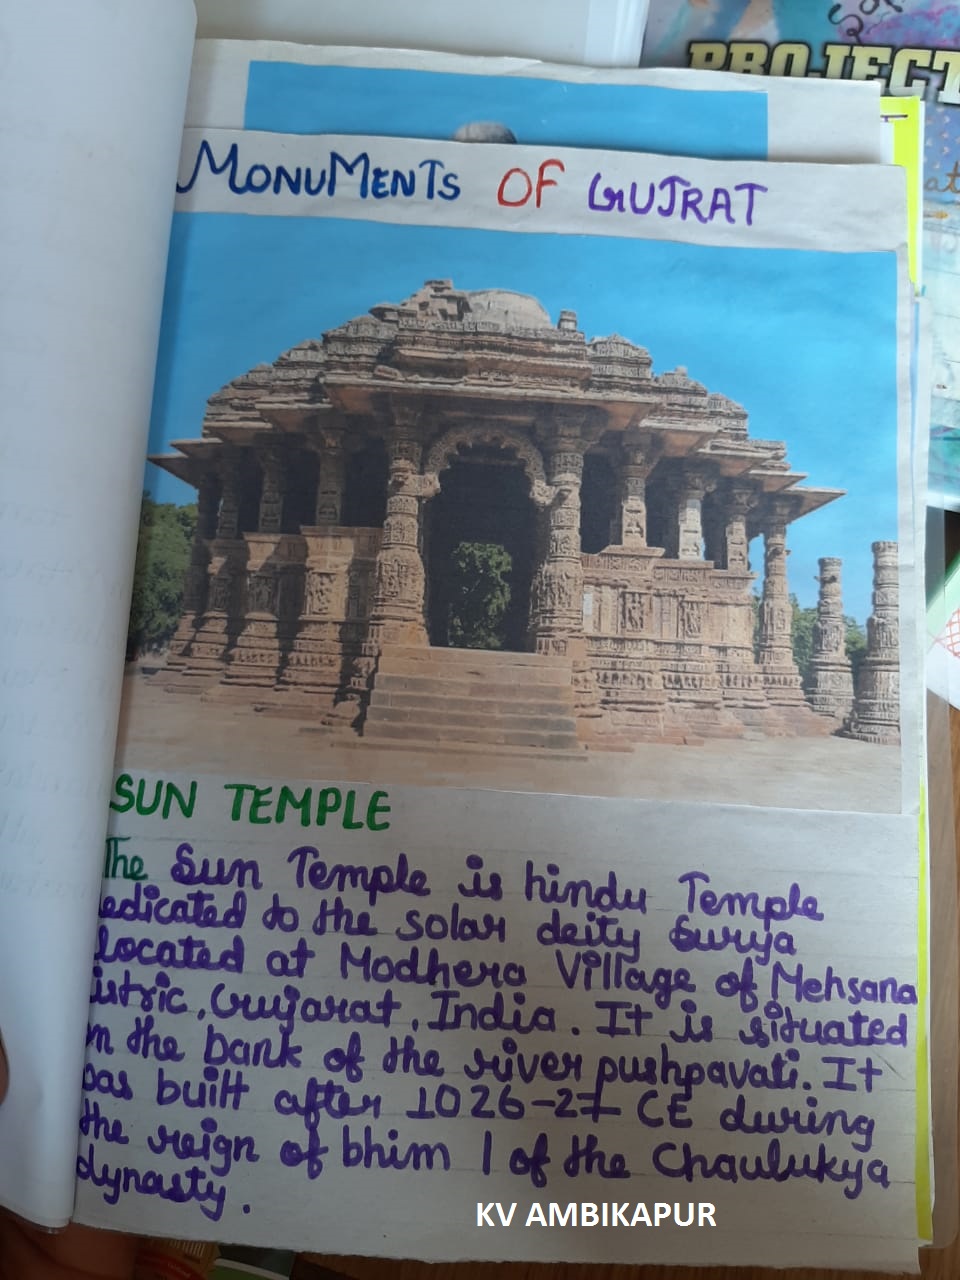 PROJECT
MONUMENTS OF GUJRAT
SUN TEMPLE
The Sun Temple is hindu Temple
edicated to the solar deity Surya
located at Modhera Village of Mehsana
istric, Gujarat, India. It is situated
n the bank of the river pushpavati. It
was built after 1026-27 CE during
the reign of bhim I of the Chaulukya
dynasty.
KV AMBIKAPUR